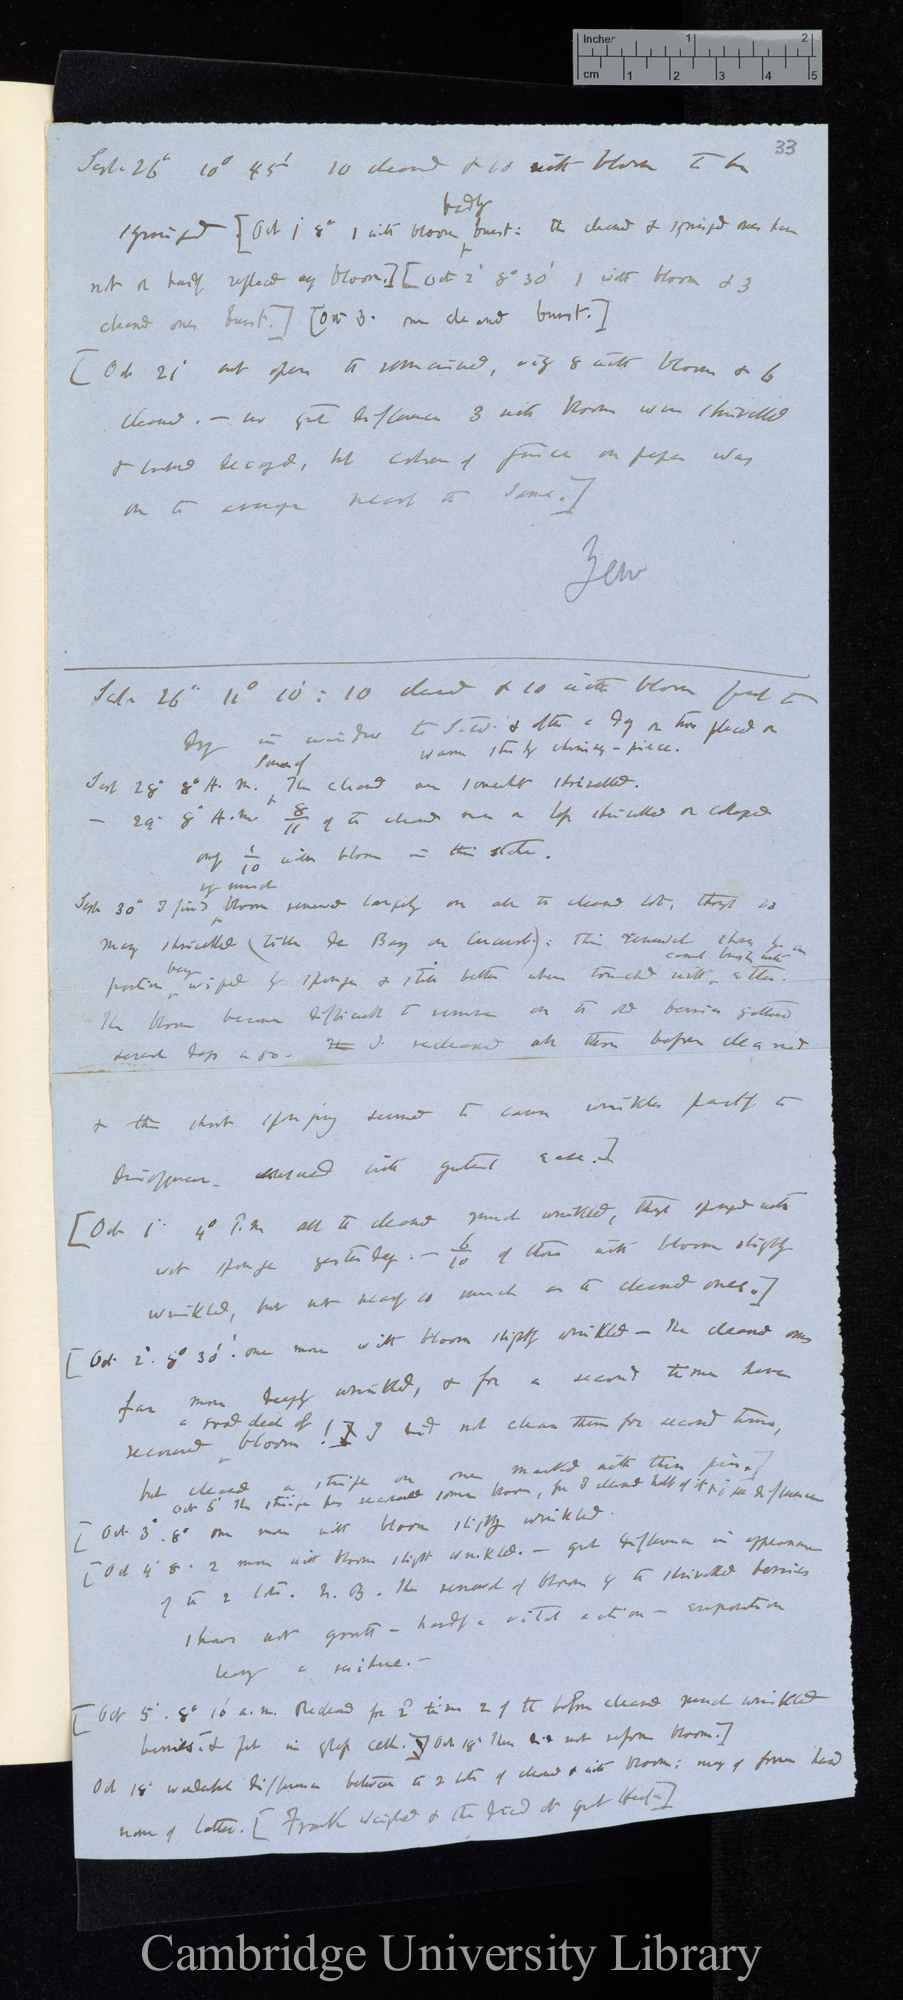 Inches 1 2
cm 1 2 3 4 5
33
Sept. 26° 10° 45' 10 cleaned & 10 with bloom to be
badly
syringed [Oct 1 8° 1 with bloom burst: the cleaned & syringed ones have
not or hardly replaced any bloom.] [Oct 2° 8° 30' 1 with bloom & 3
cleaned ones burst.] [Oct 3. one cleaned burst.]
[Oct 21 cut open the remained, viz 8 with bloom & 6
cleaned. — no great difference 3 with bloom were shrivelled
& decayed, but colour of juice on paper was
on the average nearly the same.]
Sept. 26° 11° 10': 10 cleaned & 10 with bloom put to
dry in window & after a day or two placed on
warm study chimney-piece.
Several
Sept 28° 8° A.M. of the cleaned are somewhat shrivelled.
— 29° 8° A.M. 8/11 of the cleaned more or less shrivelled or collapsed
only 1/10 with bloom in this state.
Sept 30° I find bloom renewed largely on all the cleaned lot, though so
many shrivelled: this renewal shown by a
portion being wiped by sponge & still better when touched with ether.
The bloom became difficult to remove on the old berries gathered
several days ago. I recleaned all those before cleaned
& this short sponging seemed to cause wrinkles partly to
disappear.
[Oct 1 4° P.m all the cleaned much wrinkled, though sponged with
wet sponge yesterday. — 6/10 of those with bloom slightly
wrinkled, but not nearly so much as the cleaned ones.]
[Oct. 2°. 8° 30'. one more with bloom slightly wrinkled — The cleaned ones
far more deeply wrinkled, & for a second time have
a good deal of
recovered bloom! I did not clean them for second time,
but cleaned a stripe on one marked with three pins.]
Oct 5 The stripe has recovered some bloom, for I cleaned half of it & I see difference
[Oct 3°. 8° one more with bloom slightly wrinkled.
[Oct 4 8. 2 more with bloom slight wrinkled. — great difference in appearance
of the 2 lots. N.B. The renewal of bloom by the shrivelled berries
shows not growth — hardly a vital action — evaporation
leaving a residue. —
[Oct 5. 8° 10' a.m. Recleaned for 2° time 2 of the before cleaned much wrinkled
berries & put in glass cell. Oct 18° These did not reform bloom.]
Oct 18° wonderful difference between the 2 lots of cleaned & with bloom; many of former hard
none of latter. [Frank weighed & the dried at great Heat]
Cambridge University Library